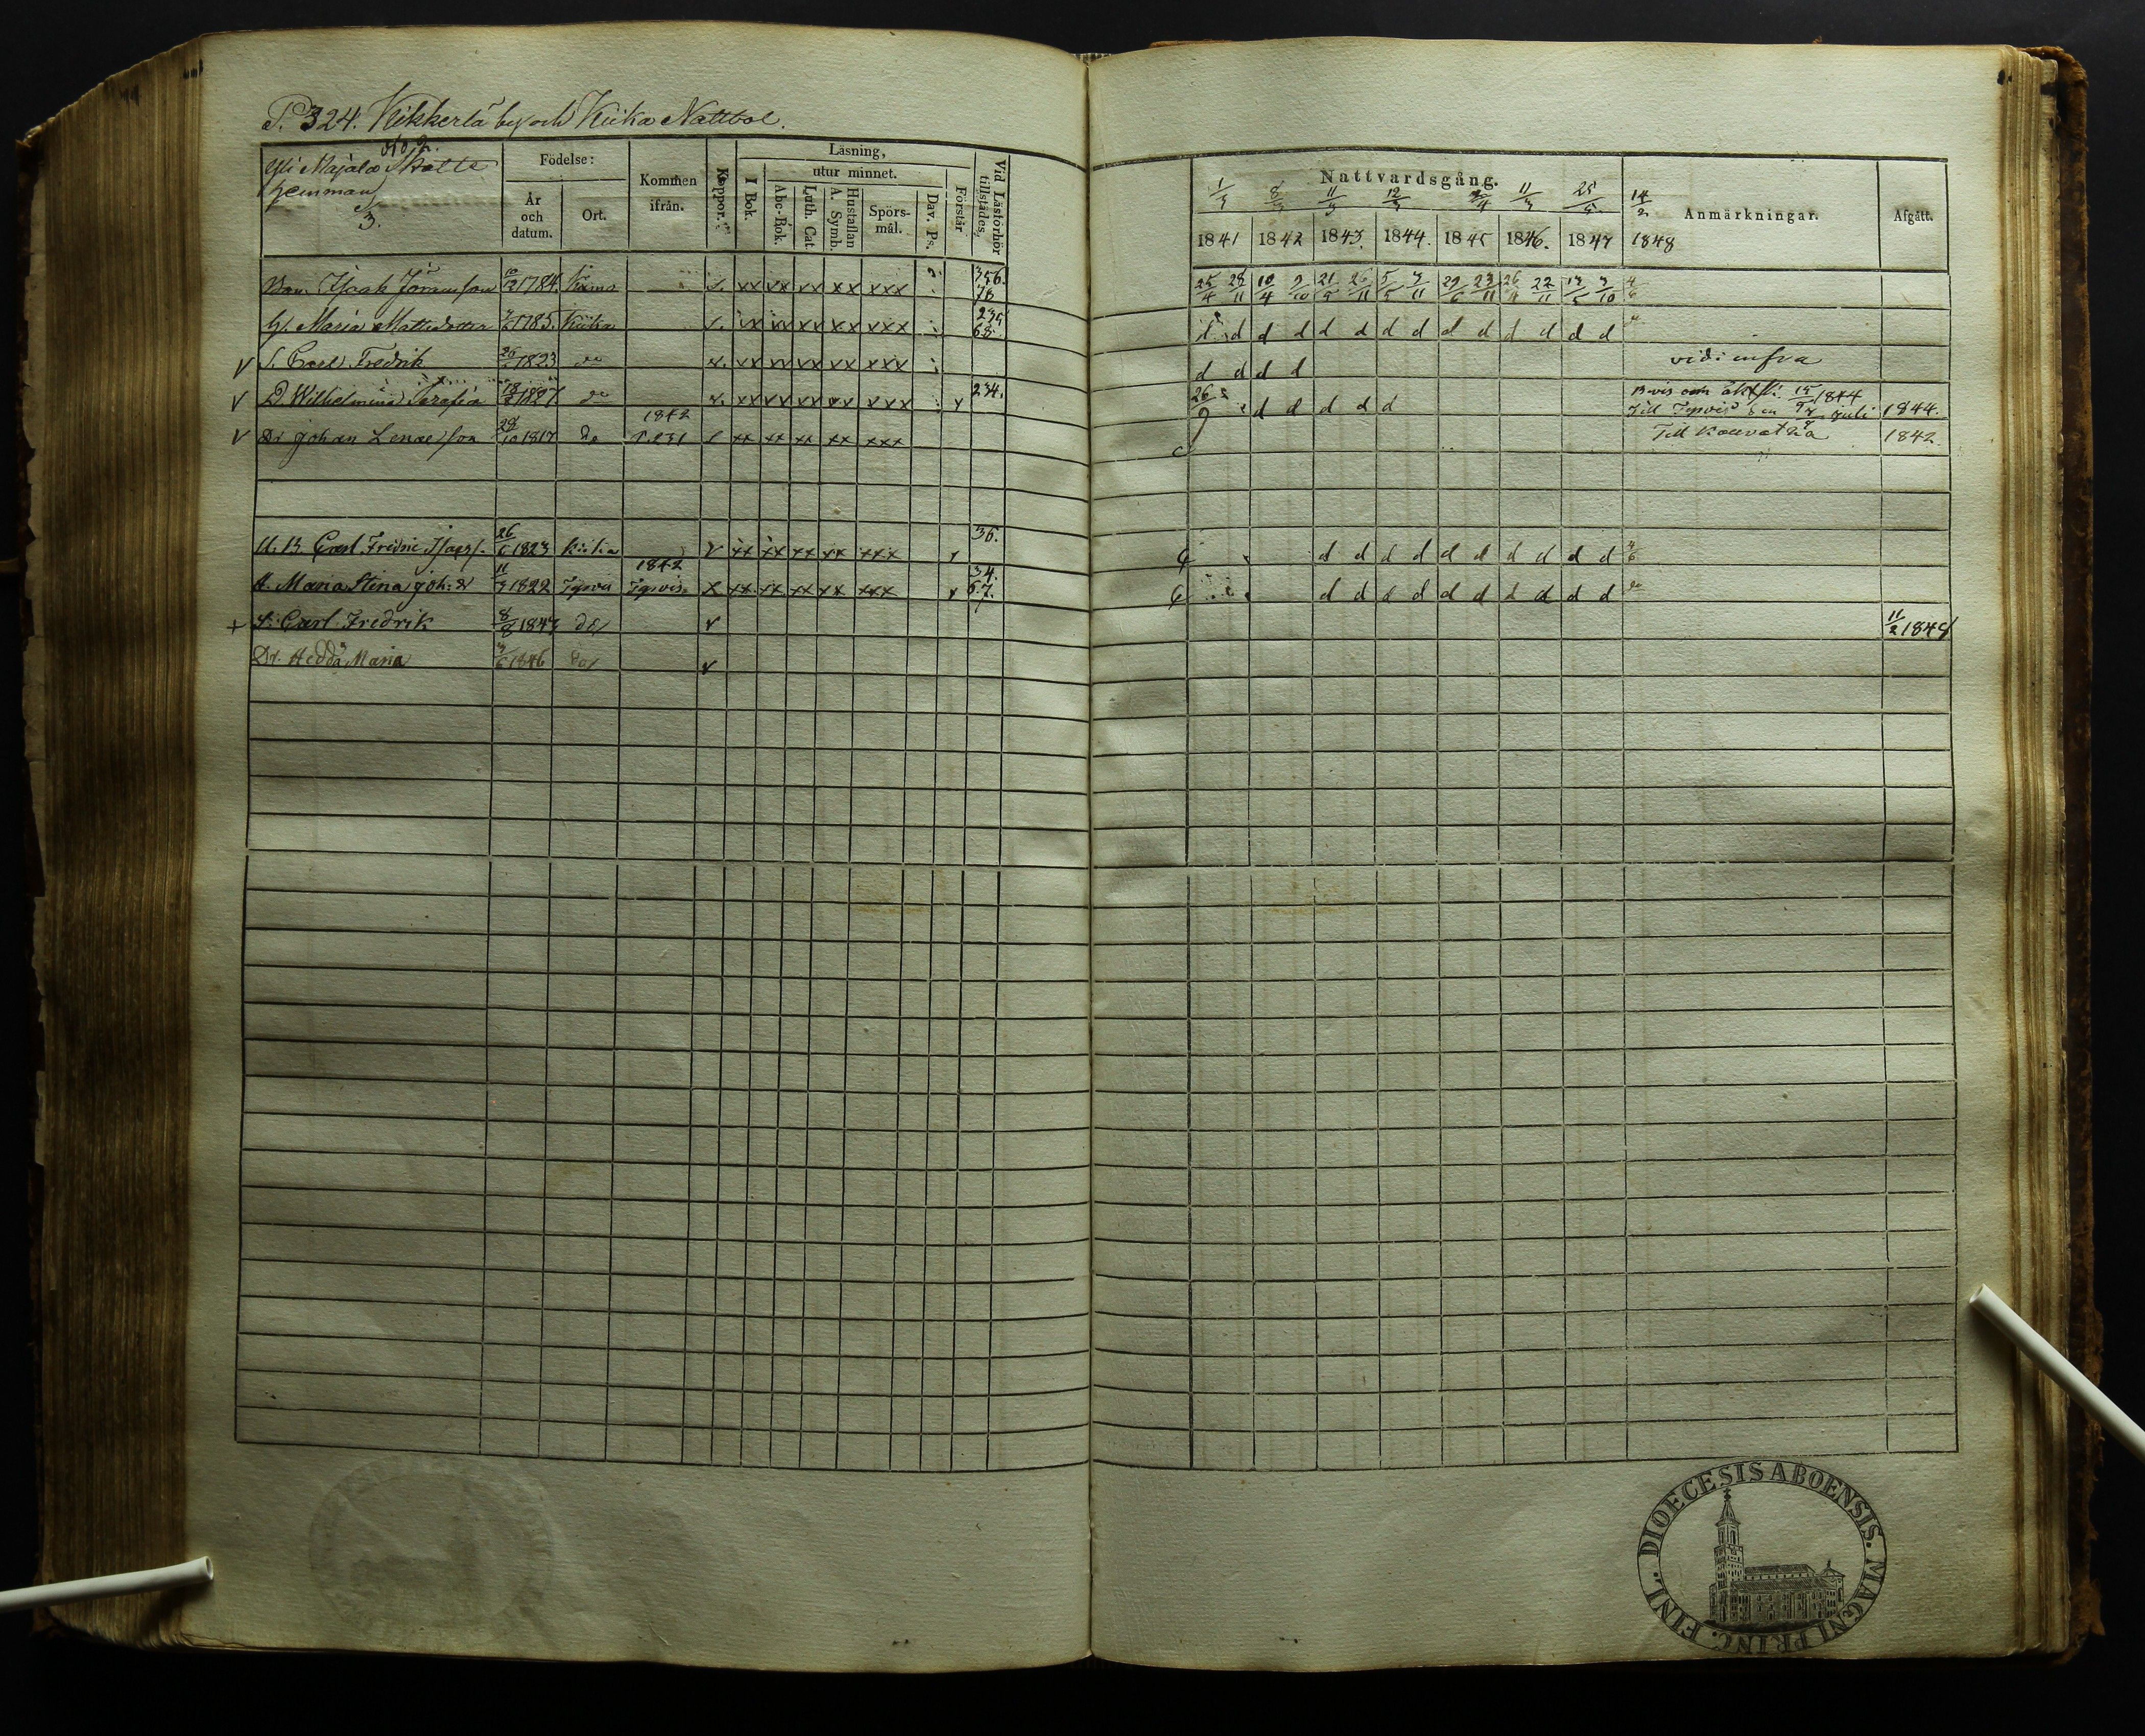 P. 324. Kikkerlä by och Kiika Nattbol.
No 2.
Yli Majala Skatte
hemman
3.
Födelse:
År
och
datum.
Ort.
Kommen
ifrån.
Koppor.
Läsning,
utur minnet.
I Bok.
Abc-Bok.
Luth. Cat.
Hustaflan
A. Symb.
Spörs-
mål.
Dav. Ps.
Förstår
Vid Läsförhör
tillstädes,
Bon. Isaak Göransson 1784. x. xx xx xx xx xxx 356. 78
H. Maria Mattsdotter 1785. Kiika xx xx xx xx xxx 235 63
S. Carl Fredrik 26/6 1823 do x. xx xx xx xx xxx
D. Wilhelmina Serafia 1827 do x. xx xx xx xx xxx 234.
Dr Johan Lenaesson 28/10 1817 do 1842 P. 231 xx xx xx xx xxx
M. B. Carl Fredric Isaacs. 26/6 1823 Kiika xx xx xx xx xxx 36.
H. Maria Stina Joh: d 11/3 1822 Tyrvis 1842 Tyrvis xx xx xx xx xxx 34. 57.
+ S: Carl Fredrik 8/8 1843 do
Dr. Hedda Maria 1846 do
Nattvardsgång.
8/3 11/3 12/3 11/3 25/5 14/2
1841 1842 1843. 1844. 1845 1846. 1847 1848
Anmärkningar.
Afgått.
25/4 28/11 10/4 9/10 21/5 26/11 5/5 3/11 29/6 23/11 22/11 3/10
d d d d d d d d d d d d d d
d d d d
vide infra
26 d d d d d
Bevis om äktsk: 15/6 1844
Till Tyrvis den Juli 1844.
Till Kauvatsa 1842.
d d d d d d d d d d
d d d d d d d d d d do
11/2 1848
FINL. DIOECESIS ABOENSIS. MAGNI PRINC.